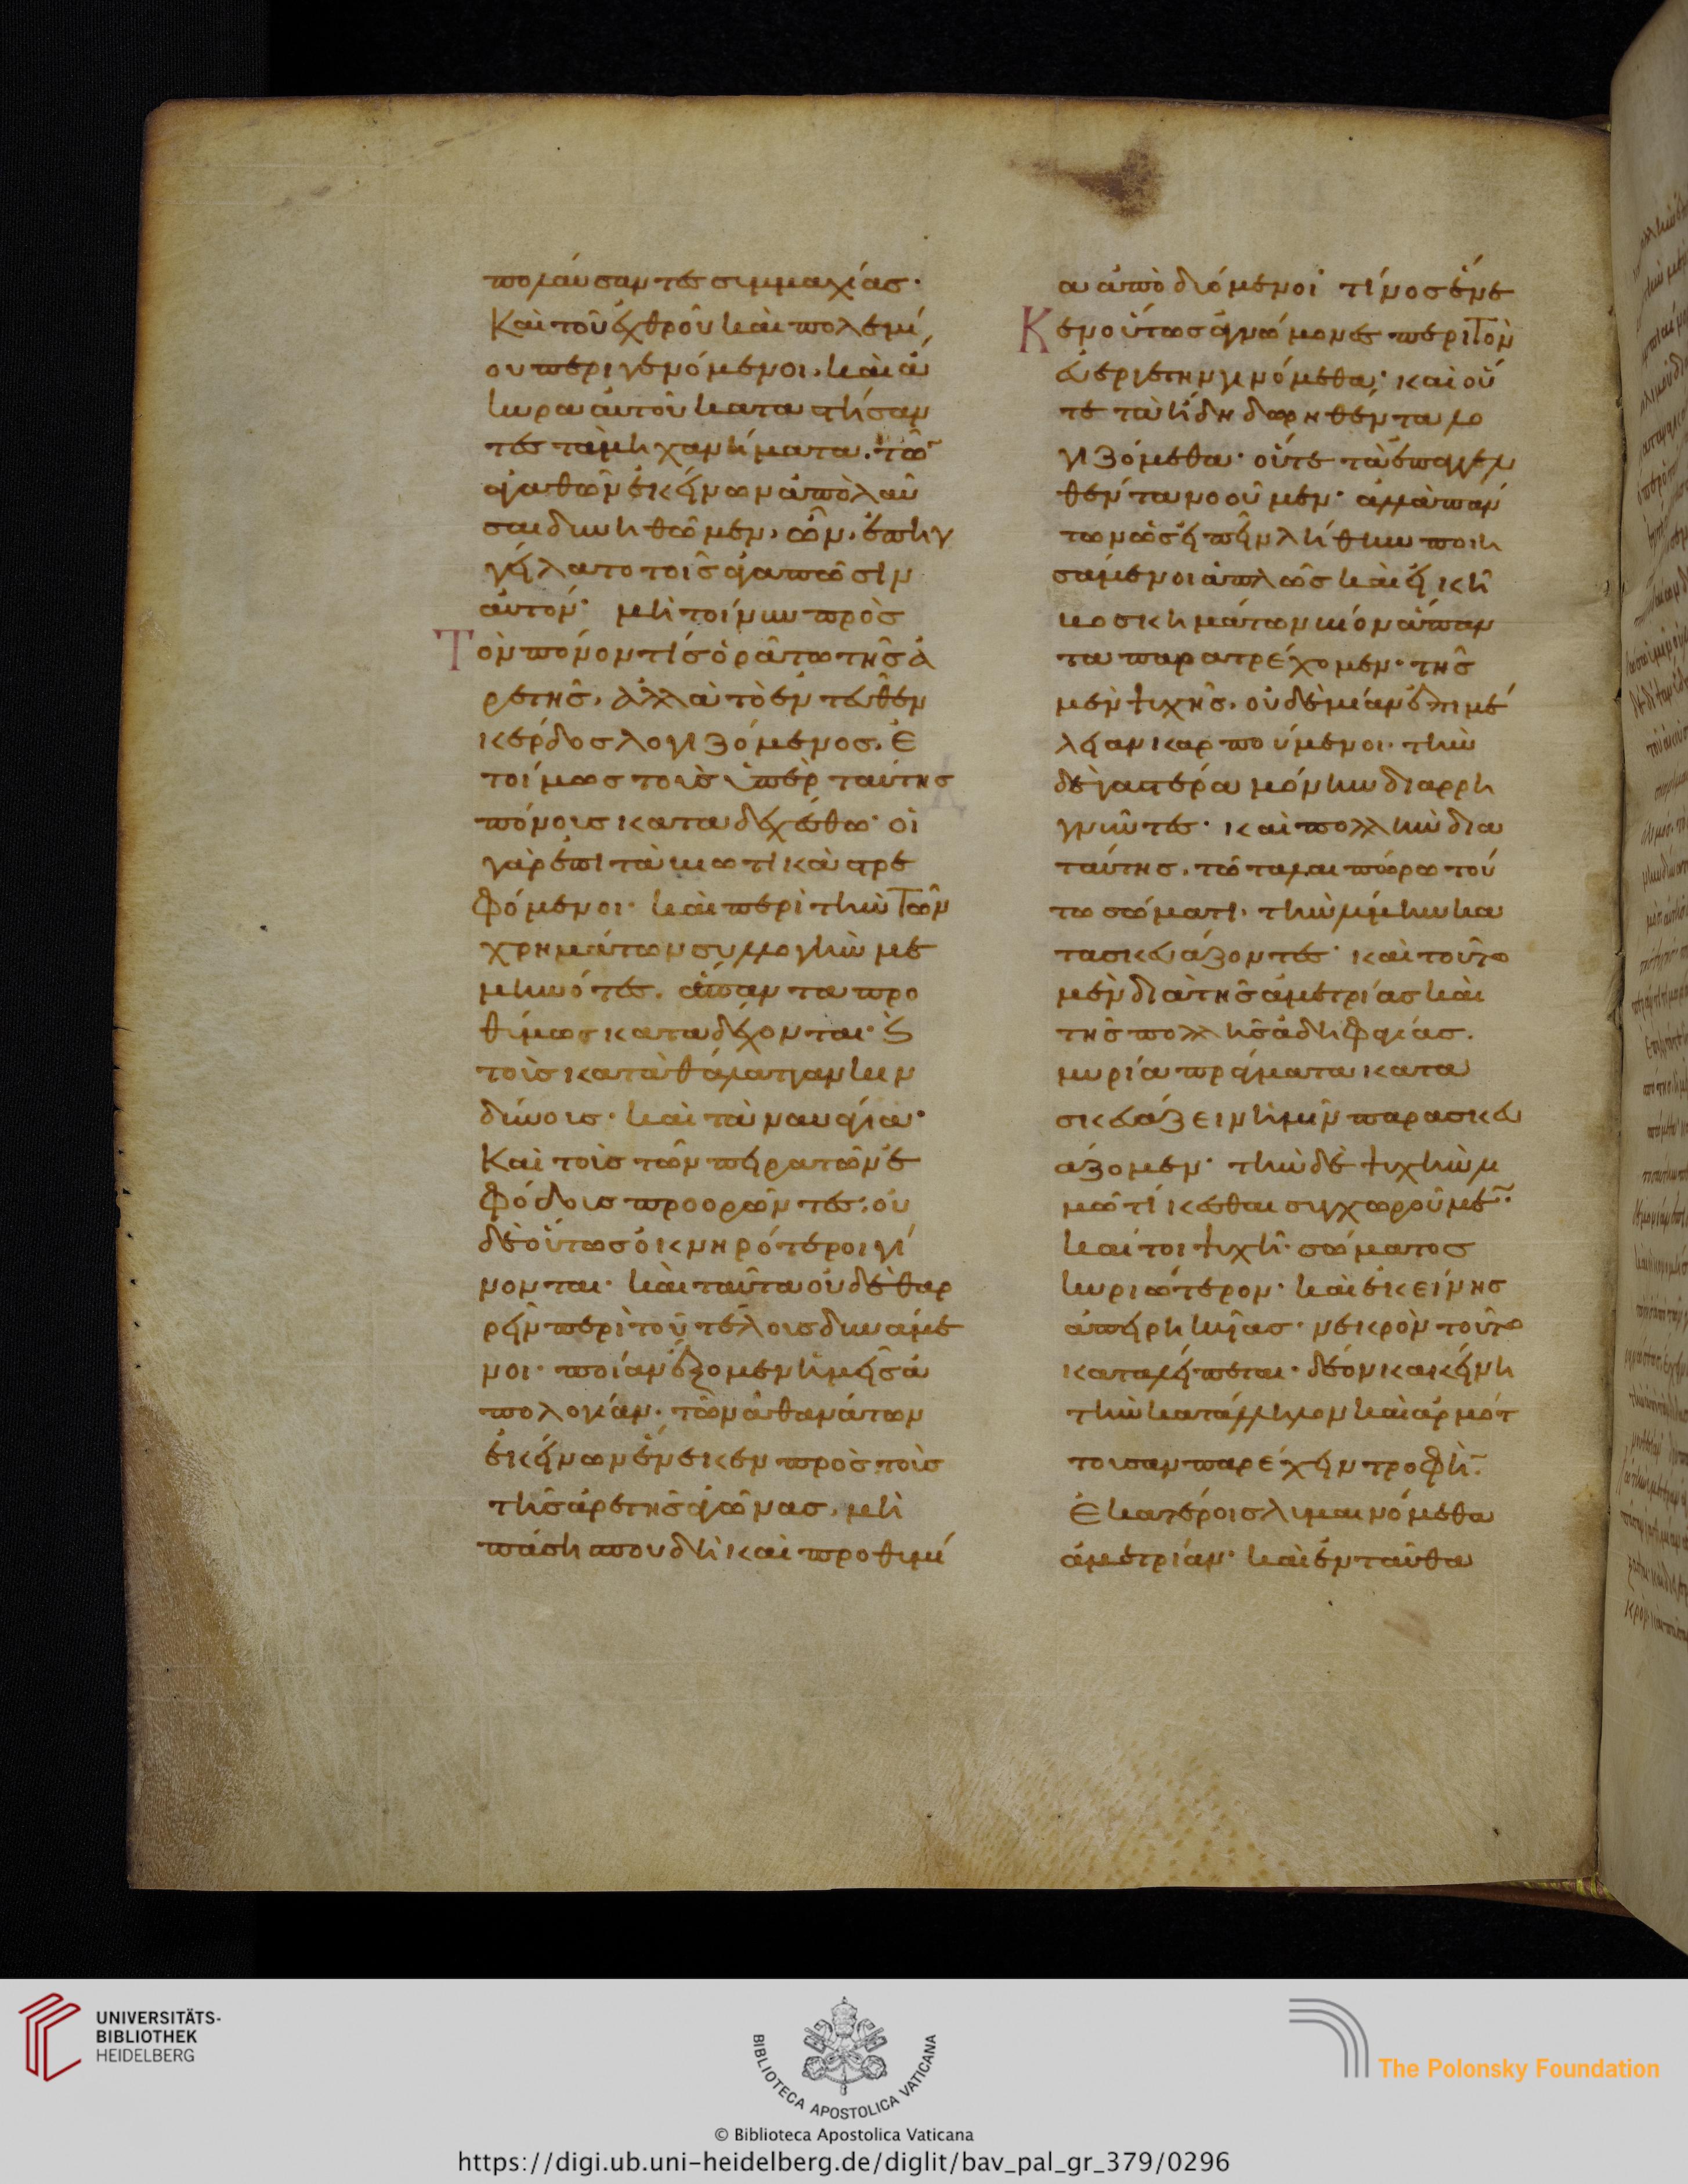 πολαύσαντες συμμαχίας·
Καὶ τοῦ ἐχθροῦ καὶ πολεμί
ου περιγενόμενοι, καὶ ἄ
κυρα αὐτοῦ καταστήσαν
τες τὰ μηχανήματα. τῶ̅
ἀγαθῶν ἐκείνων ἀπολαῦ
σαι δυνηθῶμεν, ὧν ἐπηγ
γείλατο τοῖς ἀγαπῶσιν
αὐτόν· μὴ τοίνυν πρὸς
Τὸν πόνον τίς ὁράτω τῆς ἀ
ρετῆς, ἀλλὰ τὸ ἐντεῦθεν
κέρδος λογιζόμενος. ἑ
τοίμως τοὺς ὑπὲρ ταύτης
πόνους καταδεχέσθω· οἱ
γὰρ ἐπὶ τὰ βιωτικὰ στρε
φόμενοι· καὶ περὶ τὴν τῶν
χρημάτων συλλογὴν με
μηνότες. ἅπαντα προ
θύμως καταδέχονται· (καὶ)
τοὺς κατὰ θάλατταν κιν
δύνους· καὶ τὰ ναυάγια·
Καὶ τοὺς τῶν πειρατῶν ἐ
φόδους προορῶντες· οὐ
δὲ οὕτως ὀκνηρότεροι γί
νονται· καὶ ταῦτα οὐδὲ θαρ
ρεῖν περὶ τοῦ τέλους δυνάμε
νοι· ποίαν ἕξομεν ἡμεῖς ἀ
πολογίαν· τῶν ἀθανάτων
ἐκείνων ἕνεκεν πρὸς τοὺς
τῆς ἀρετῆς ἀγῶνας, μὴ
πάση σπουδῆ καὶ προθυμί
α ἀποδυόμενοι· τίνος ἕνε
Κεν οὕτως ἀγνώμονες περὶ τὸν
εὐεργέτην γινόμεθα· καὶ οὔ
τε τὰ ἤδη δωρηθέντα λο
γιζόμεθα· οὔτε τὰ ἐπαγγελ
θέντα νοοῦμεν· ἀλλὰ πάν
των ὡς εἰπεῖν λήθην ποιη
σάμενοι ἁπλῶς καὶ εἰκῆ
βοσκημάτων βίον ἅπαν
τα παρατρέχομεν· τῆς
μὲν ψυχῆς, οὐδεμίαν ἐπιμέ
λειαν καρπούμενοι· τὴν
δὲ γαστέρα μόνην διαρρη
γνῦντες· καὶ πολλὴν διὰ
ταύτης, τῶ ταλαιπώρω τού
τω σώματι, τὴν λύμην κα
τασκευάζοντες· καὶ τοῦτο
μὲν διὰ τῆς ἀμετρίας καὶ
τῆς πολλῆς ἀδηφαγίας.
μυρία πράγματα κατα
σκευάζειν ἡμῖν παρασκευ
άζομεν· τὴν δὲ ψυχὴν λι
μῶ τήκεσθαι συγχωροῦμε̅·
καίτοι ψυχὴ· σώματος
κυριώτερον· καὶ ἐκείνης
ἀπειρηκυίας· νεκρὸν τοῦτο
καταλείπεται· δέον κἀκείνη
τὴν κατάλληλον καὶ ἁρμότ
τουσαν παρέχειν τροφὴ̅·
ἑκατέροις λυμαινόμεθα
ἀμετρίαν· καὶ ἐνταῦθα
UNIVERSITÄTS-
BIBLIOTHEK
HEIDELBERG
BIBLIOTECA APOSTOLICA VATICANA
The Polonsky Foundation
© Biblioteca Apostolica Vaticana
https://digi.ub.uni-heidelberg.de/diglit/bav_pal_gr_379/0296